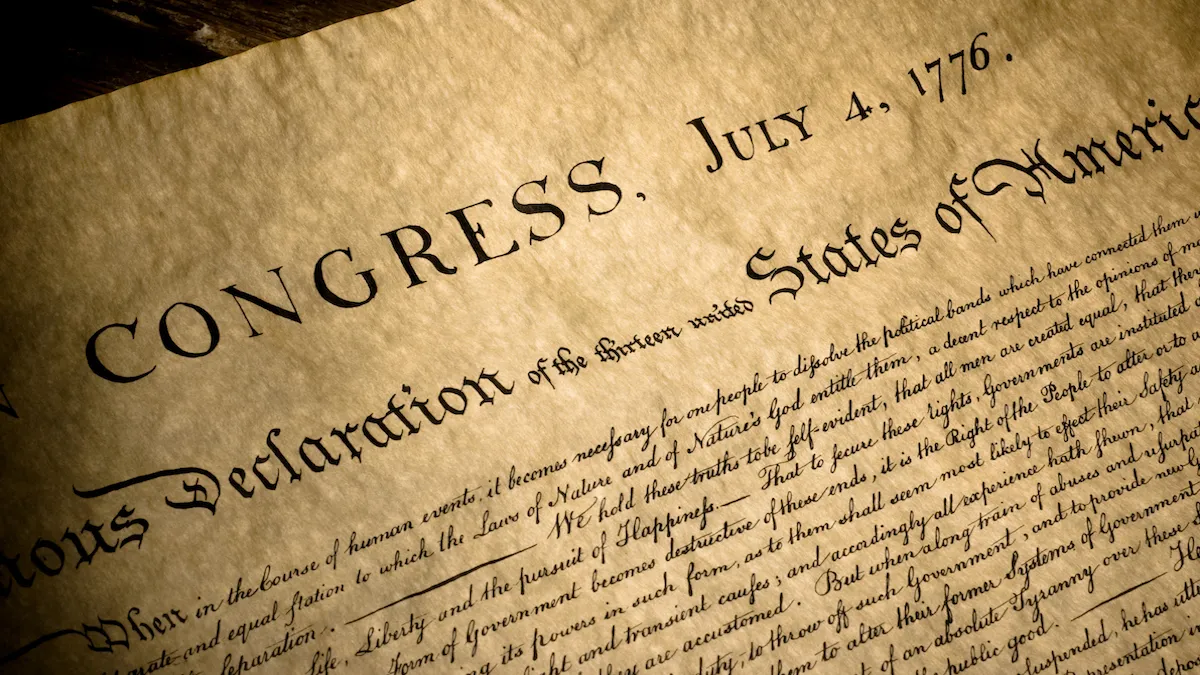 CONGRESS, JULY 4, 1776.
Declaration of the thirteen united States of
When in the Course of human events, it becomes neceſsary for one people to diſsolve the political bands which have connected them
and equal ſtation to which the Laws of Nature and of Nature's God entitle them, a decent respect to the opinions of
ſeparation. We hold these truths to be ſelf-evident, that all men are created equal, that
Life, Liberty and the pursuit of Happineſs. — That to ſecure these rights, Governments are instituted
Form of Government becomes destructive of these ends, it is the Right of the People to alter or to
its powers in such form, as to them shall seem most likely to effect their Safety
and transient cauſes; and accordingly all experience hath ſhewn, that
they are accustomed. But when a long train of abuses and
duty, to throw off such Government, and to provide new
them to alter their former Systems of Government
of an absolute Tyranny over these
public good.
suspended, he has
Representation in